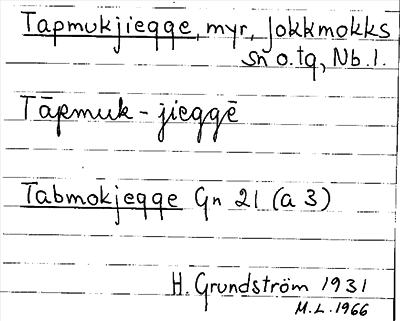 Tapmukjiegge, myr, Jokkmokks
sn o. tg, Nb. l.
Tāpmuk-jieggē
Tabmokjegge Gn 21 (a 3)
H. Grundström 1931
M. L. 1966